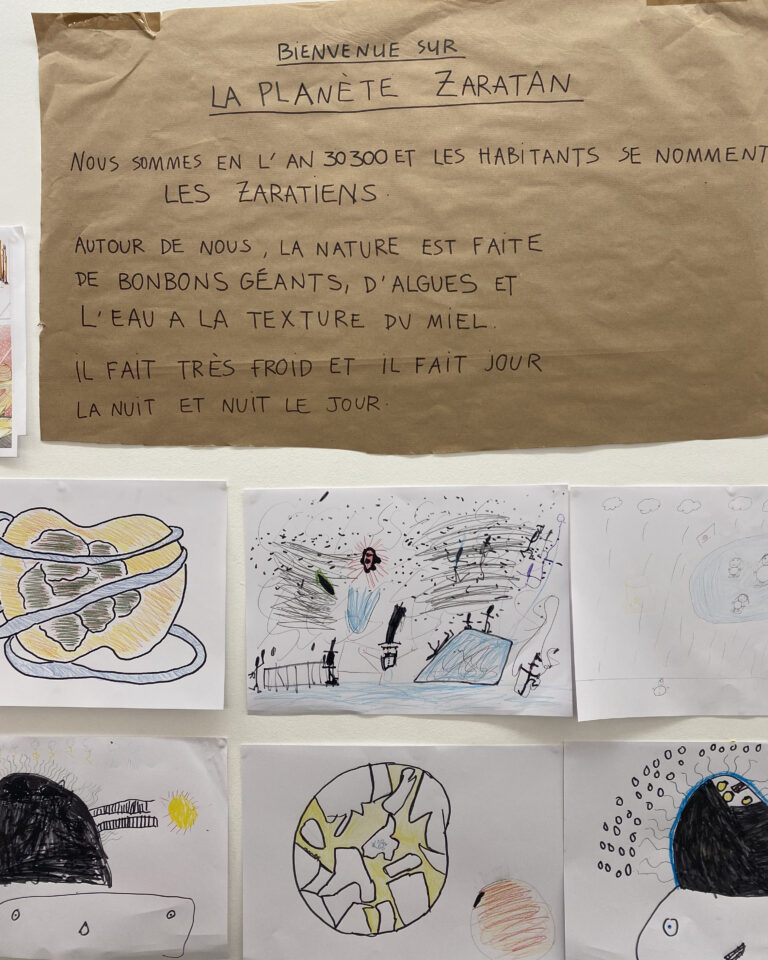 BIENVENUE SUR
LA PLANÈTE ZARATAN
NOUS SOMMES EN L'AN 30300 ET LES HABITANTS SE NOMMENT
LES ZARATIENS.
AUTOUR DE NOUS, LA NATURE EST FAITE
DE BONBONS GÉANTS, D'ALGUES ET
L'EAU A LA TEXTURE DU MIEL.
IL FAIT TRÈS FROID ET IL FAIT JOUR
LA NUIT ET NUIT LE JOUR.